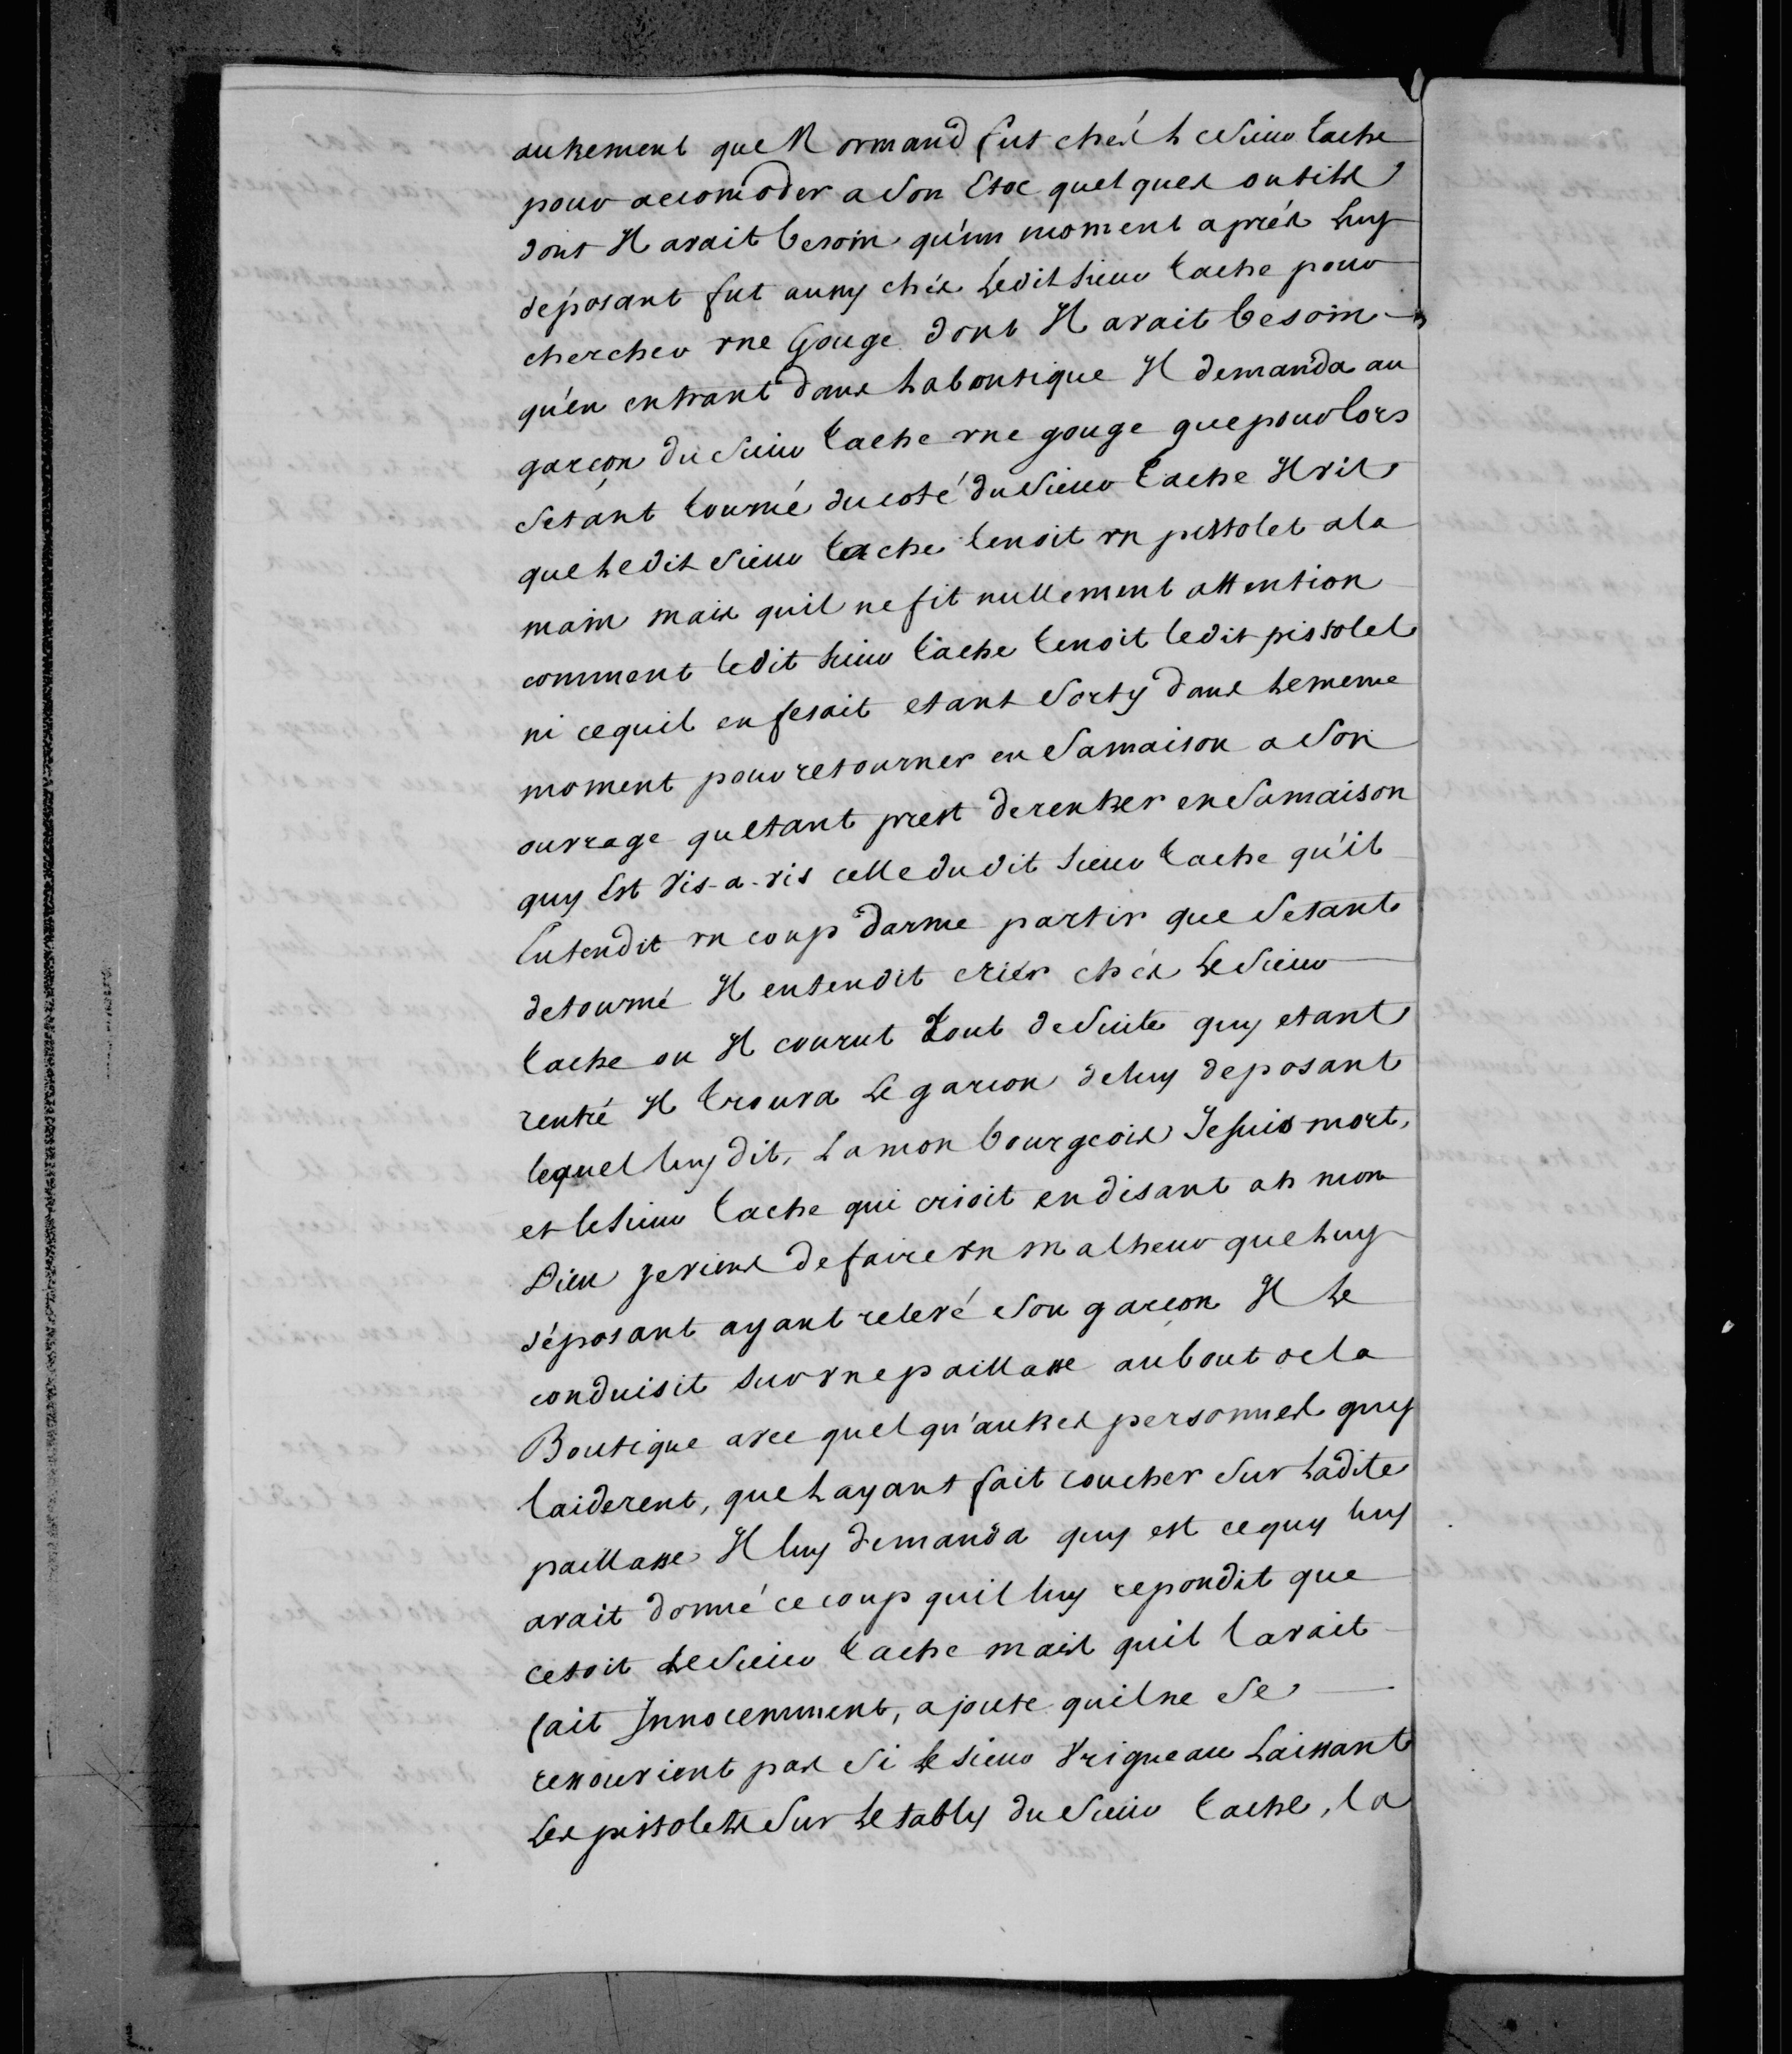 autrement que Normand fut chés le Sieur Tache
pour accomoder a Son Etoc quelques outils
dont Il avait besoin qu'un moment aprés Luy
déposant fut aussy chés Ledit Sieur Tache pour
chercher une Gouge dont Il avait besoin
qu'en entrant dans La boutique Il demanda au
garçon du Sieur Tache une gouge que pour lors
Setant tourné du coté du Sieur Tache Il vit
que Le dit Sieur Tache tenoit un pistolet a la
main mais quil ne fit nullement attention
comment ledit Sieur Tache tenoit ledit pistolet
ni ce quil en fesait etant Sorty dans Le meme
moment pour retourner en Sa maison a Son
ouvrage quetant prest de rentrer en Sa maison
quy Est vis-a-vis celle du dit Sieur Tache qu'il
Entendit un coup darme partir que Setant
detourné Il entendit crier chés Le Sieur
Tache ou Il courut tout de Suite quy etant
rentré Il trouva Le garçon de luy deposant
lequel luy dit, La mon bourgeois Je suis mort,
et le Sieur Tache qui crioit en disant ah mon
Dieu je viens de faire un malheur que Luy
déposant ayant relevé Son garçon Il Le
conduisit sur une paillasse au bout de la
Boutique avec quelqu'autres personnes quy
laiderent, que Layant fait coucher Sur Ladite
paillasse Il luy demanda quy est ce quy luy
avait donné ce coup quil luy repondit que
cetoit Le Sieur Tache mais quil l'avait
fait Innocemment, ajoute quil ne Se
ressouvient pas Si le Sieur Vrigneau Laissant
Les pistolets Sur Le tably du Sieur Tache, la